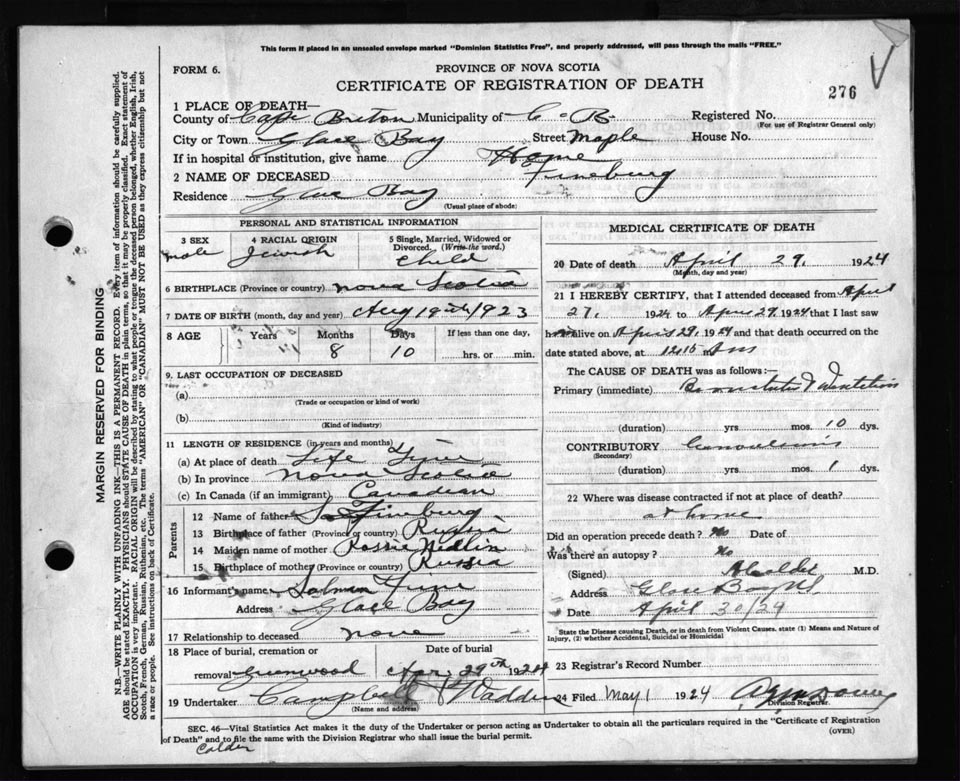 This form if placed in an unsealed envelope marked "Dominion Statistics Free", and properly addressed, will pass through the mails "FREE."
FORM 6.
PROVINCE OF NOVA SCOTIA
CERTIFICATE OF REGISTRATION OF DEATH
276
1 PLACE OF DEATH—
County of Cape Breton Municipality of C. B. Registered No.
(For use of Registrar General only)
City or Town Glace Bay Street Maple House No.
If in hospital or institution, give name Home
2 NAME OF DECEASED Fineburg
Residence Glace Bay
(Usual place of abode)
PERSONAL AND STATISTICAL INFORMATION
3 SEX 4 RACIAL ORIGIN 5 Single, Married, Widowed or Divorced. (Write the word.)
male Jewish Child
6 BIRTHPLACE (Province or country) Nova Scotia
7 DATE OF BIRTH (month, day and year) Aug 19th 1923
8 AGE Years Months Days If less than one day,
8 10 hrs. or min.
9. LAST OCCUPATION OF DECEASED
(a)
(Trade or occupation or kind of work)
(b)
(Kind of industry)
11 LENGTH OF RESIDENCE (in years and months)
(a) At place of death Life Time
(b) In province Nova Scotia
(c) In Canada (if an immigrant) Canadian
Parents
12 Name of father Fineburg
13 Birthplace of father (Province or country) Russia
14 Maiden name of mother
15 Birthplace of mother (Province or country) Russia
16 Informant's name
Address Glace Bay
17 Relationship to deceased none
18 Place of burial, cremation or removal Date of burial
Apr 29th 1924
19 Undertaker Campbell
(Name and address)
MEDICAL CERTIFICATE OF DEATH
20 Date of death April 29, 1924
(Month, day and year)
21 I HEREBY CERTIFY, that I attended deceased from April
27, 1924 to April 29, 1924 that I last saw
him alive on April 29, 1924 and that death occurred on the
date stated above, at 12.15 am
The CAUSE OF DEATH was as follows:—
Primary (immediate)
(duration) yrs. mos. 10 dys.
CONTRIBUTORY Convulsions
(Secondary)
(duration) yrs. mos. 1 dys.
22 Where was disease contracted if not at place of death?
at home
Did an operation precede death? No Date of
Was there an autopsy? No
(Signed) M.D.
Address Glace Bay N.S.
Date April 30/24
State the Disease causing Death, or in death from Violent Causes, state (1) Means and Nature of Injury, (2) whether Accidental, Suicidal or Homicidal
23 Registrar's Record Number
24 Filed May 1 1924
Division Registrar.
SEC. 46—Vital Statistics Act makes it the duty of the Undertaker or person acting as Undertaker to obtain all the particulars required in the "Certificate of Registration
of Death" and to file the same with the Division Registrar who shall issue the burial permit.
(OVER)
Calder
MARGIN RESERVED FOR BINDING
N.B.—WRITE PLAINLY WITH UNFADING INK—THIS IS A PERMANENT RECORD. Every item of information should be carefully supplied.
AGE should be stated EXACTLY. PHYSICIANS should STATE CAUSE OF DEATH in plain terms, so that it may be properly classified. Exact statement of
OCCUPATION is very important. RACIAL ORIGIN will be described by stating to what people or tongue the deceased person belonged, whether English, Irish,
Scotch, French, German, Russian, Ruthenian, etc. The terms "AMERICAN" or "CANADIAN" MUST NOT BE USED as they express citizenship but not
a race or people. See instructions on back of Certificate.